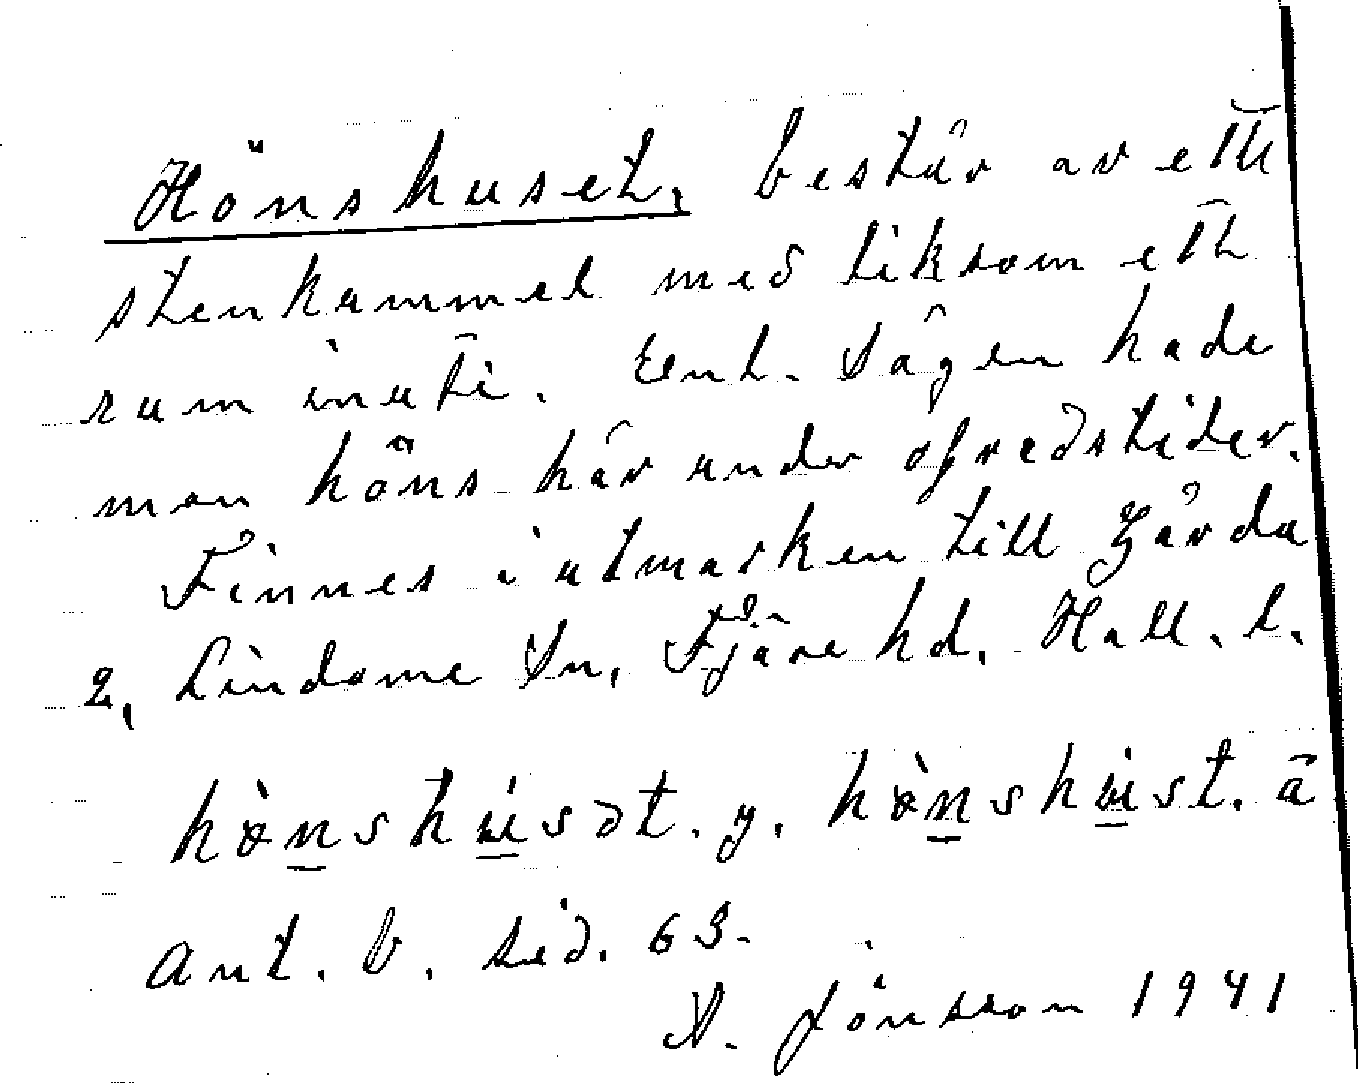 Hönshuset, består av ett
stenkummel med liksom ett
rum inuti. Enl. Sägen hade
man höns här under ofredstider.
Finnes i utmarken till Gårda
2, Lindome Sn, Fjäre hd. Hall. l.
ant. b. sid. 63.
Jönsson 1941